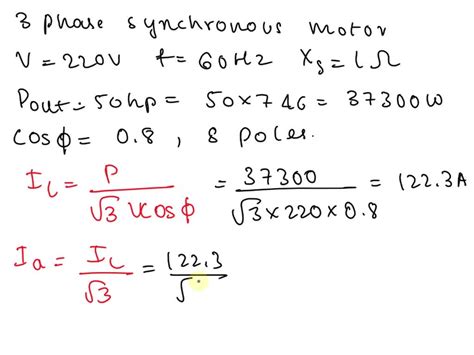 3 phase synchronous motor
V = 220V f = 60Hz Xs = 1Ω
Pout = 50hp = 50×746 = 37300W
cosϕ = 0.8 , 8 poles.
IL = P / √3 Vcosϕ = 37300 / √3×220×0.8 = 122.3A
Ia = IL / √3 = 122.3 / √